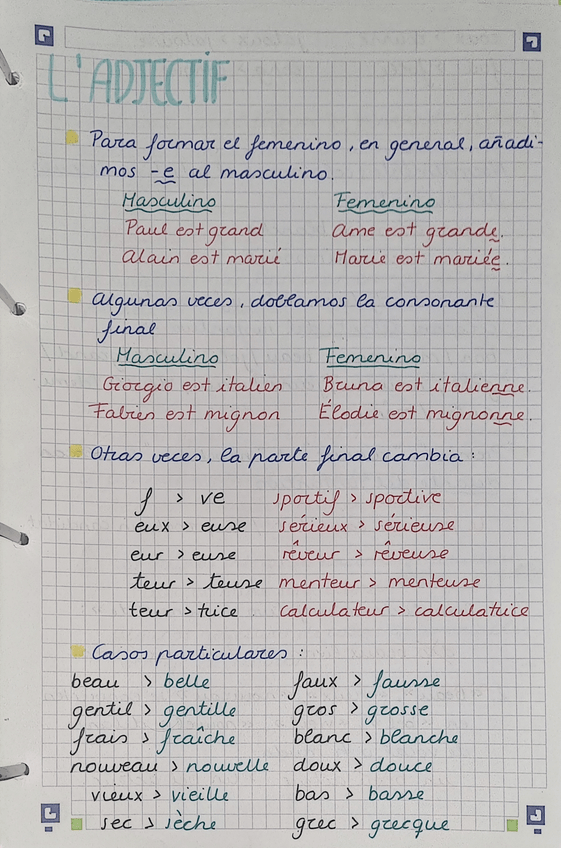 L'ADJECTIF
Para formar el femenino, en general, añadi-
mos -e al masculino.
Masculino Femenino
Paul est grand Ame est grande.
Alain est marié Marie est mariée.
Algunas veces, doblamos la consonante
final
Masculino Femenino
Giorgio est italien Bruna est italienne.
Fabien est mignon Élodie est mignonne.
Otras veces, la parte final cambia :
f > ve sportif > sportive
eux > euse sérieux > sérieuse
eur > euse rêveur > rêveuse
teur > teuse menteur > menteuse
teur > trice calculateur > calculatrice
Casos particulares :
beau > belle faux > fausse
gentil > gentille gros > grosse
frais > fraîche blanc > blanche
nouveau > nouvelle doux > douce
vieux > vieille bas > basse
sec > sèche grec > grecque